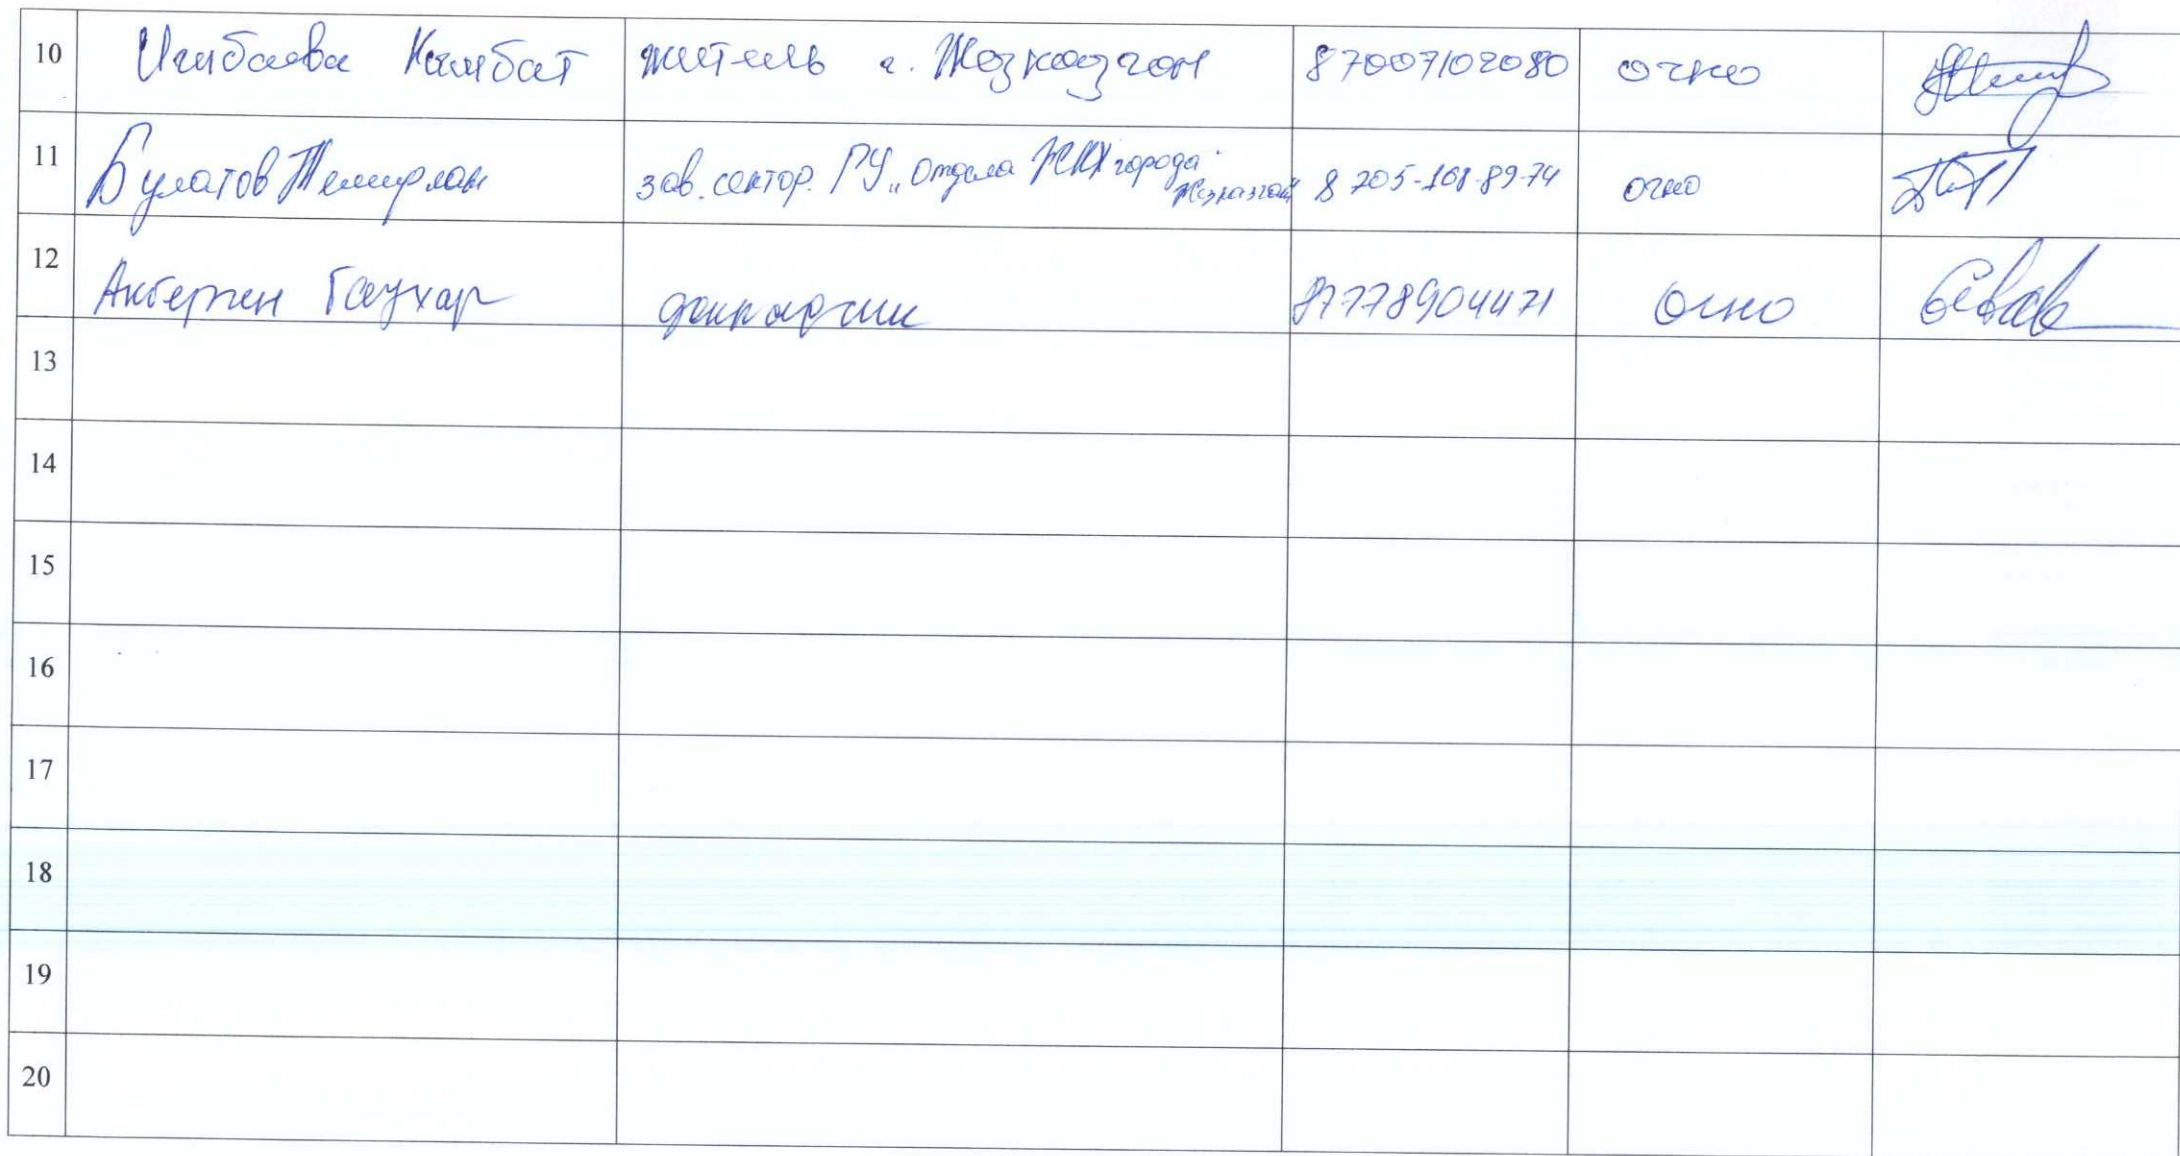 10 Кымбат житель г. Жезказган 87007102080 очно
11 Булатов Темирлан зав. сектор. ГУ „Отдела ЖКХ города Жезказган" 8 705-168-89-74 очно
12 Акберген Гаухар докладчик 87778904471 очно
13
14
15
16
17
18
19
20